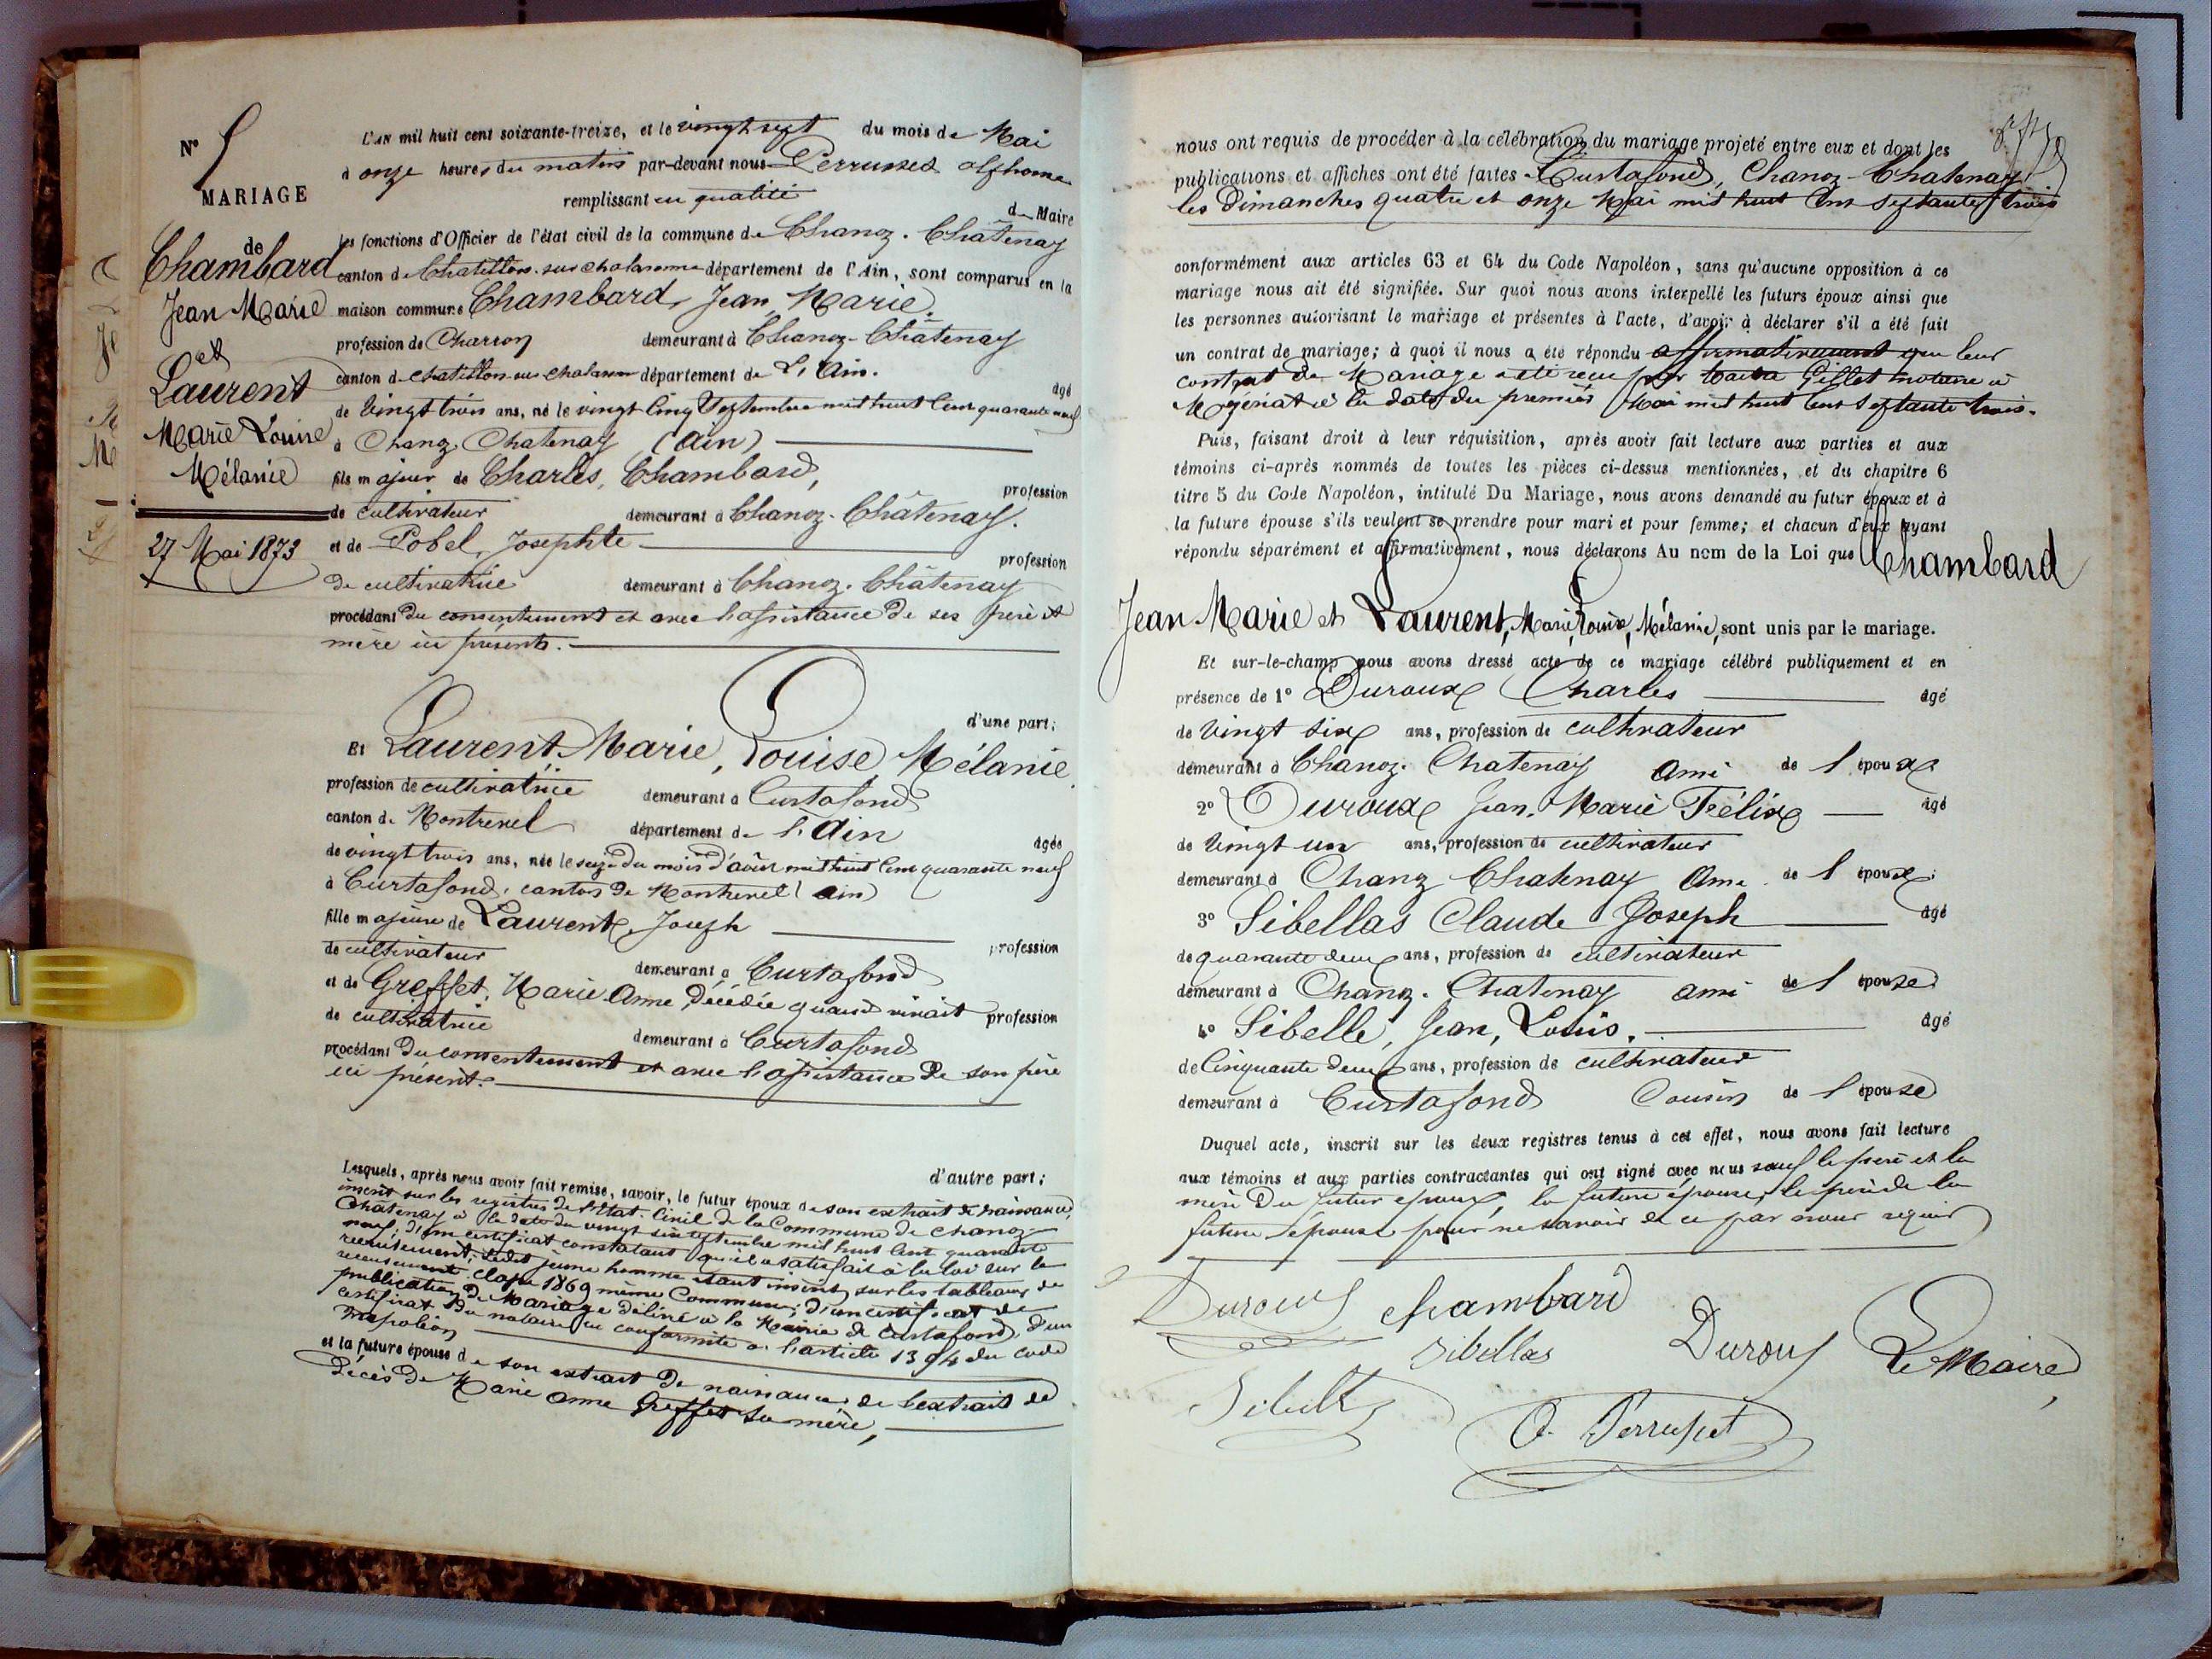 N° 5
MARIAGE
de
Chambard
Jean Marie
et
Laurent
Marie Louise
Mélanie
27 Mai 1873
L'AN mil huit cent soixante-treize, et le vingt sept du mois de Mai
à onze heures du matin par-devant nous Perrusset alphonse
remplissant en qualité de Maire
les fonctions d'Officier de l'état civil de la commune de Chanoz-Châtenay
canton de Chatillon-sur-chalaronne département de l'Ain, sont comparus en la
maison commune Chambard, Jean, Marie.
profession de Charron demeurant à Chanoz-Châtenay
canton de Chatillon sur chalaronne département de L'Ain.
âgé
de vingt trois ans, né le vingt cinq Septembre mil huit cent quarante neuf
à Chanoz Chatenay (Ain)
fils majeur de Charles, Chambard,
profession
de cultivateur demeurant à Chanoz-Châtenay.
et de Pobel, Josephte
profession
de cultivatrice demeurant à Chanoz-Châtenay
procédant du consentement et avec l'assistance de ses père et
mère ici présents.
d'une part;
Et Laurent, Marie, Louise Mélanie
profession de cultivatrice demeurant à Curtafond
canton de Montrevel département de l'Ain
âgée
de vingt trois ans, née le seize du mois d'août mil huit cent quarante neuf
à Curtafond, canton de Montrevel (ain)
fille majeure de Laurent, Joseph
profession
de cultivateur demeurant à Curtafond
et de Greffet, Marie Anne, décédée quand vivait profession
de cultivatrice demeurant à Curtafond
procédant du consentement et avec l'assistance de son père
ici présent.
d'autre part;
Lesquels, après nous avoir fait remise, savoir, le futur époux de son extrait de naissance,
inscrit sur les registres de l'Etat-Civil de la Commune de Chanoz-
Châtenay à la date du vingt six septembre mil huit cent quarante
neuf, d'un certificat constatant qu'il a satisfait à la loi sur le
recrutement, ledit jeune homme étant inscrit sur les tableaux de
recensement classe 1869 même Commune; d'un certificat de
publication de Mariage délivré à la Mairie de Curtafond, d'un
certificat du notaire en conformité à l'article 1394 du code
Napoléon
et la future épouse de son extrait de naissance, de l'extrait de
décès de Marie Anne Greffet sa mère,
nous ont requis de procéder à la célébration du mariage projeté entre eux et dont les
publications et affiches ont été faites Curtafond, Chanoz-Chatenay
les Dimanches quatre et onze Mai mil huit Cent Septante trois
conformément aux articles 63 et 64 du Code Napoléon, sans qu'aucune opposition à ce
mariage nous ait été signifiée. Sur quoi nous avons interpellé les futurs époux ainsi que
les personnes autorisant le mariage et présentes à l'acte, d'avoir à déclarer s'il a été fait
un contrat de mariage; à quoi il nous a été répondu affirmativement que leur
contrat de Mariage a été reçu par Gillet notaire à
Mézériat à la date du premier Mai mil huit cent Septante trois.
Puis, faisant droit à leur réquisition, après avoir fait lecture aux parties et aux
témoins ci-après nommés de toutes les pièces ci-dessus mentionnées, et du chapitre 6
titre 5 du Code Napoléon, intitulé Du Mariage, nous avons demandé au futur époux et à
la future épouse s'ils veulent se prendre pour mari et pour femme; et chacun d'eux ayant
répondu séparément et affirmativement, nous déclarons Au nom de la Loi que Chambard
Jean Marie et Laurent, Marie, Louise, Mélanie, sont unis par le mariage.
Et sur-le-champ nous avons dressé acte de ce mariage célébré publiquement et en
présence de 1° Duroux Charles âgé
de vingt six ans, profession de cultivateur
demeurant à Chanoz-Chatenay ami de l'époux
2° Duroux Jean, Marie Félix âgé
de vingt un ans, profession de cultivateur
demeurant à Chanoz Chatenay Ami de l'époux;
3° Sibellas Claude Joseph âgé
de quarante deux ans, profession de cultivateur
demeurant à Chanoz-Chatenay ami de l'épouse
4° Sibelle, Jean, Louis, âgé
de Cinquante deux ans, profession de cultivateur
demeurant à Curtafond Cousin de l'épouse
Duquel acte, inscrit sur les deux registres tenus à cet effet, nous avons fait lecture
aux témoins et aux parties contractantes qui ont signé avec nous sauf le père et la
mère du futur époux, la future épouse, le père de la
future épouse pour ne savoir de ce par nous requis
Duroux chambard
Sibellas Duroux Le Maire,
Sibelle
A. Perrusset